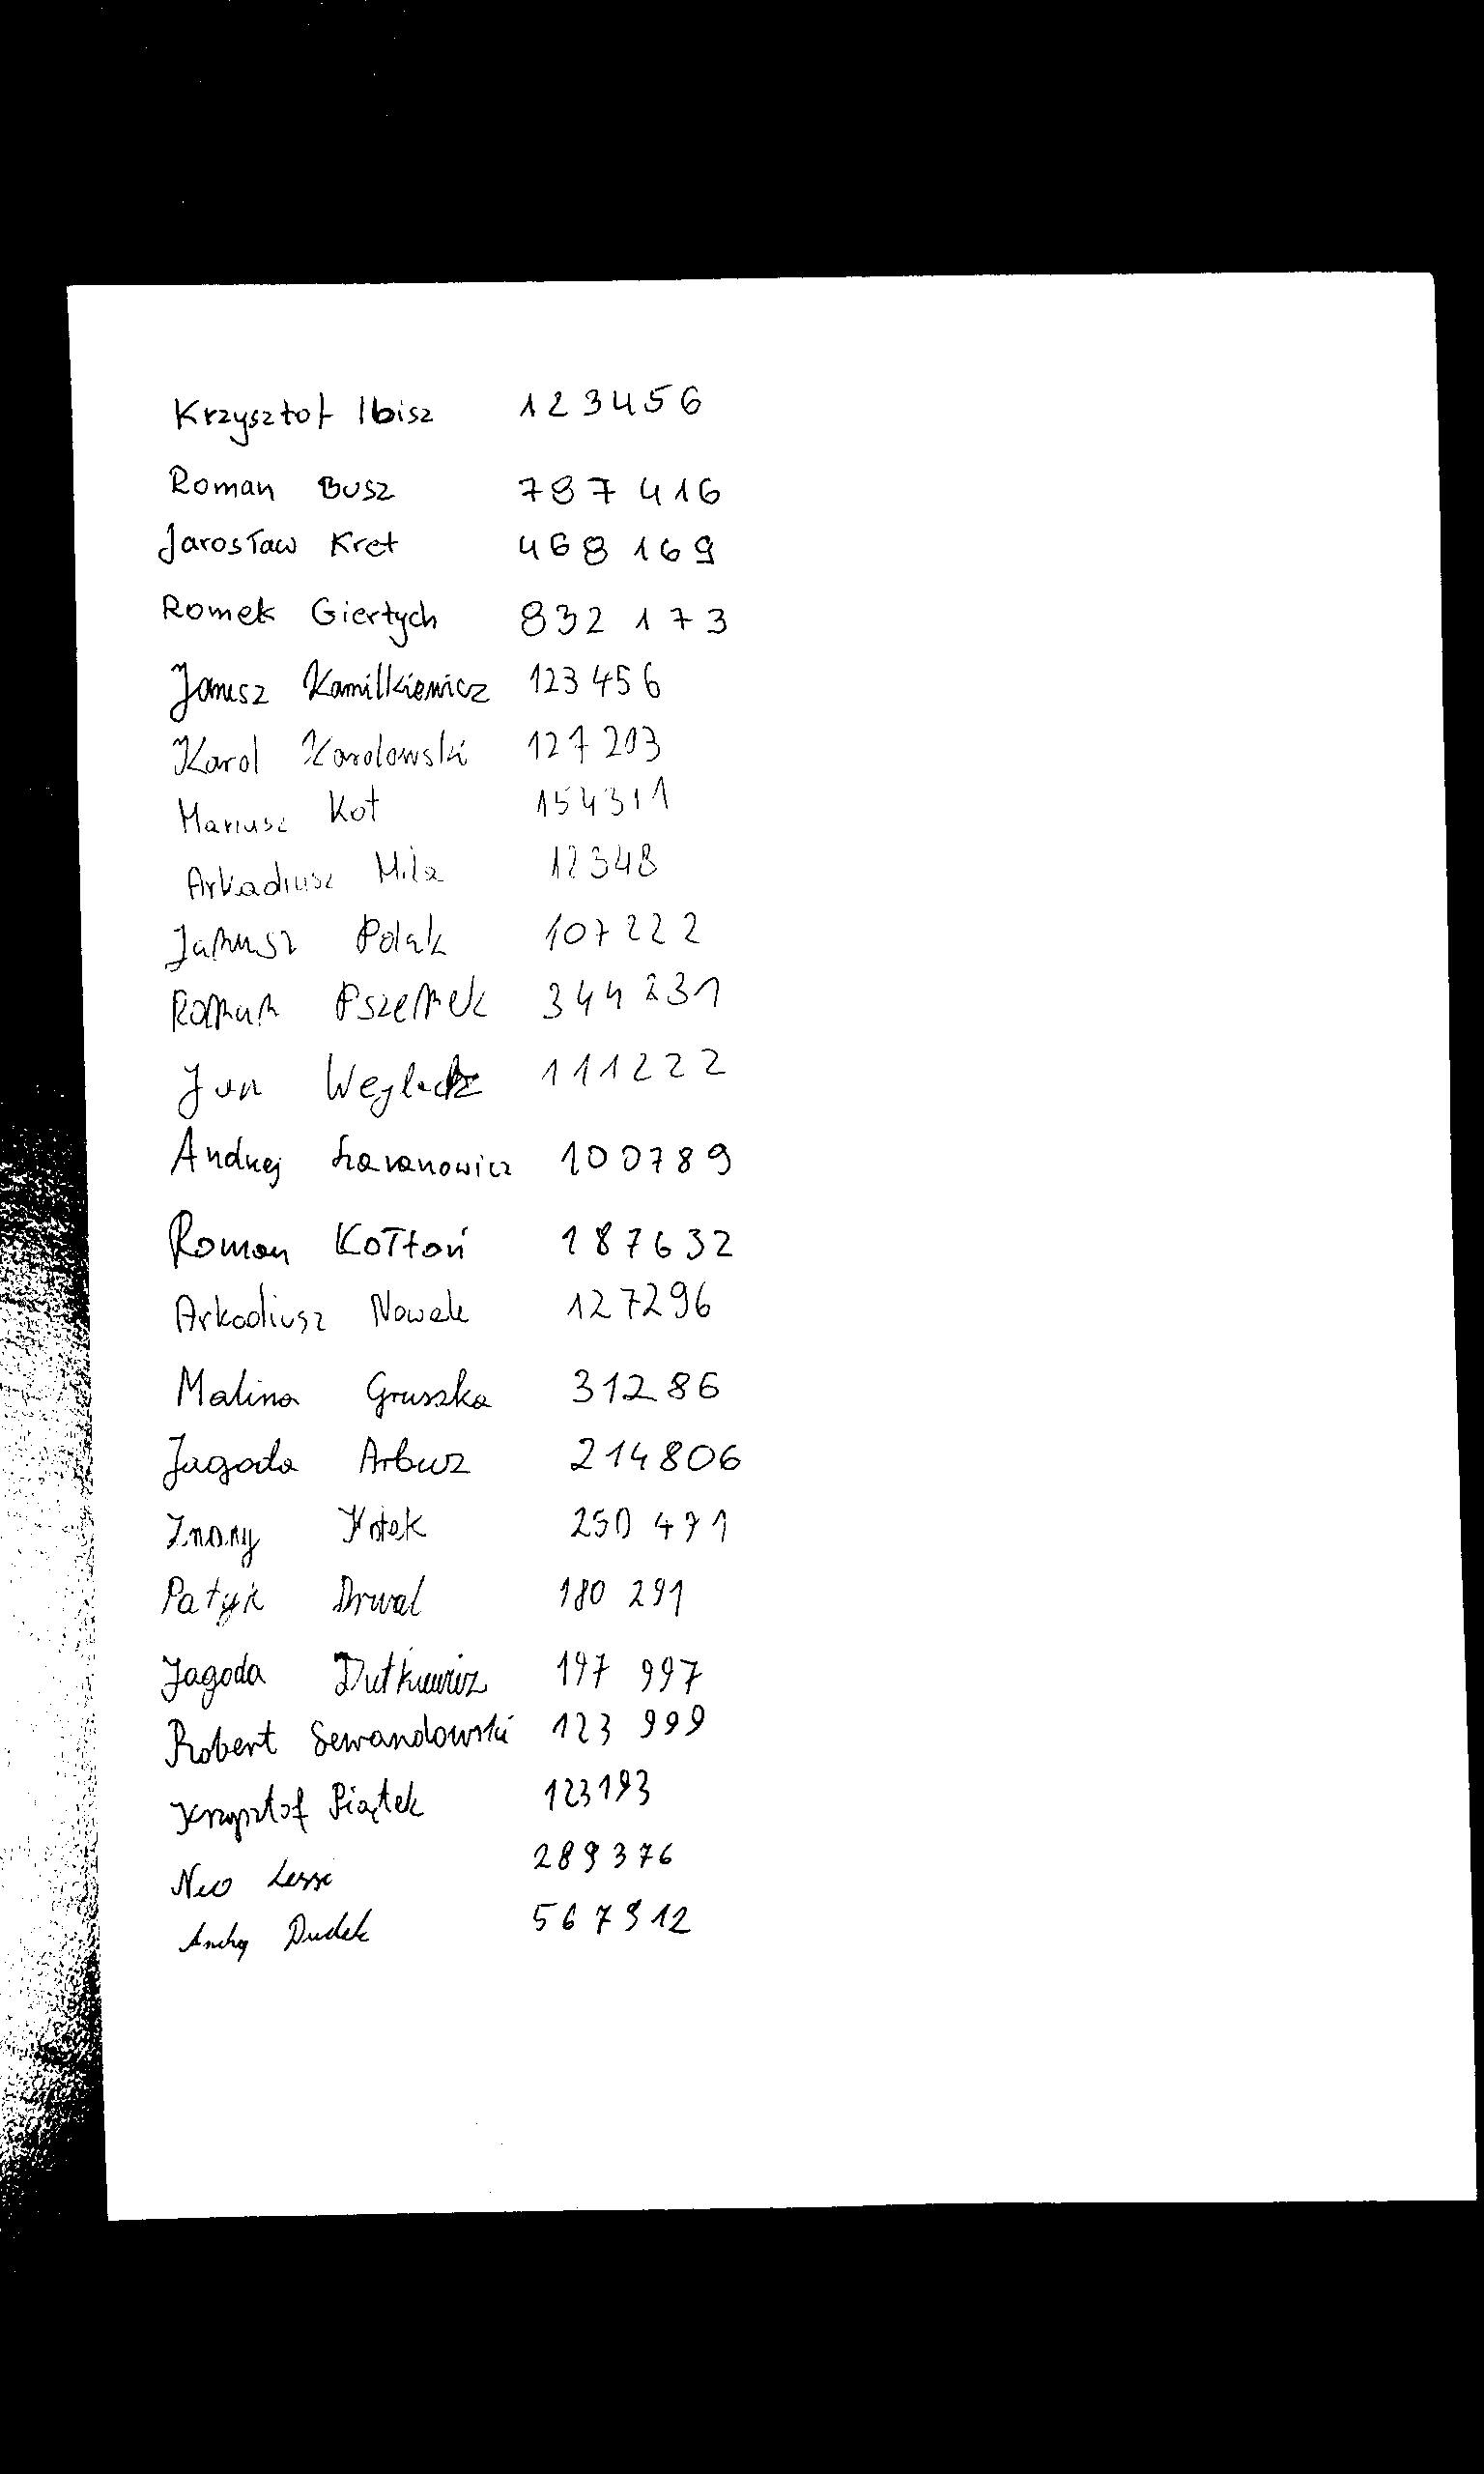 Krzysztof Ibisz 123456
Roman Busz 787 416
Jarosław Kret 468 169
Romek Giertych 832 173
Janusz Kamilkiewicz 123 456
Karol Karolowski 127 203
Mariusz Kot 154311
Arkadiusz 12348
Janusz Polak 107 222
Roman Pszemek 344 231
Jan 111222
Andrzej 100789
Roman Kołtoń 187632
Arkadiusz Nowak 127296
Malina Gruszka 31286
Jagoda Arbuz 214806
Znany Kotek 250 471
Patyk Drwal 180 291
Jagoda Dutkiewicz 197 997
Robert Lewandowski 123 999
Krzysztof Piątek 123193
289376
Dudek 567912